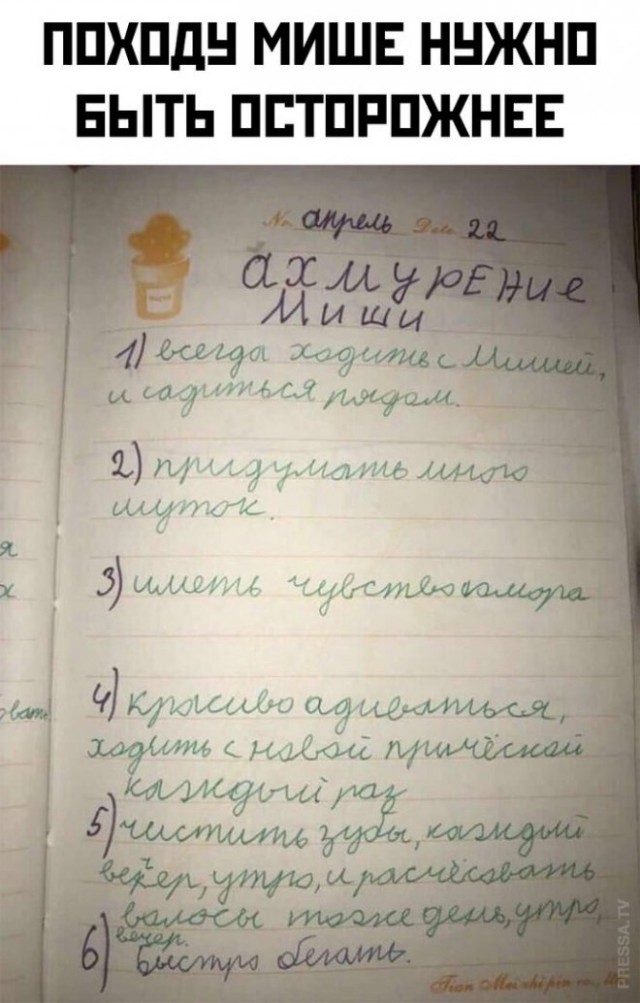 ПОХОДУ МИШЕ НУЖНО
БЫТЬ ОСТОРОЖНЕЕ
No апрель Date 22
ахмурение
Миши
1) всегда ходить с Мишей,
и садиться рядом.
2) придумать много
шуток.
3) иметь чувство юмора
4) красиво адиваться,
ходить с новой причёской
каждый раз
5) чистить зубы, каждый
вечер, утро, и расчёсовать
волосы тоже день, утро,
вечер.
6) быстро бегать.
я
х
овать
PRESSA.TV